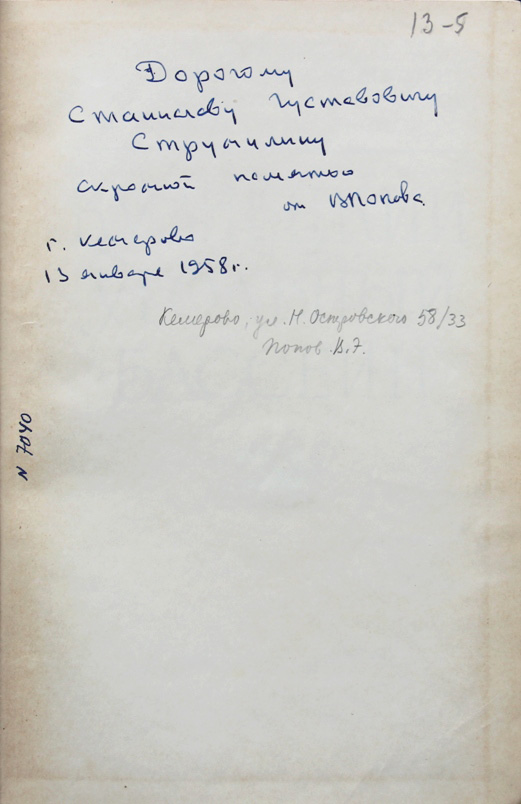 13-5
Дорогому
Станиславу Густавовичу
Струмилину
скромной памятью
от ВПопова.
г. Кемерово
13 января 1958 г.
Кемерово, ул. Н. Островского 58/33
Попов В.Г.
N 7040